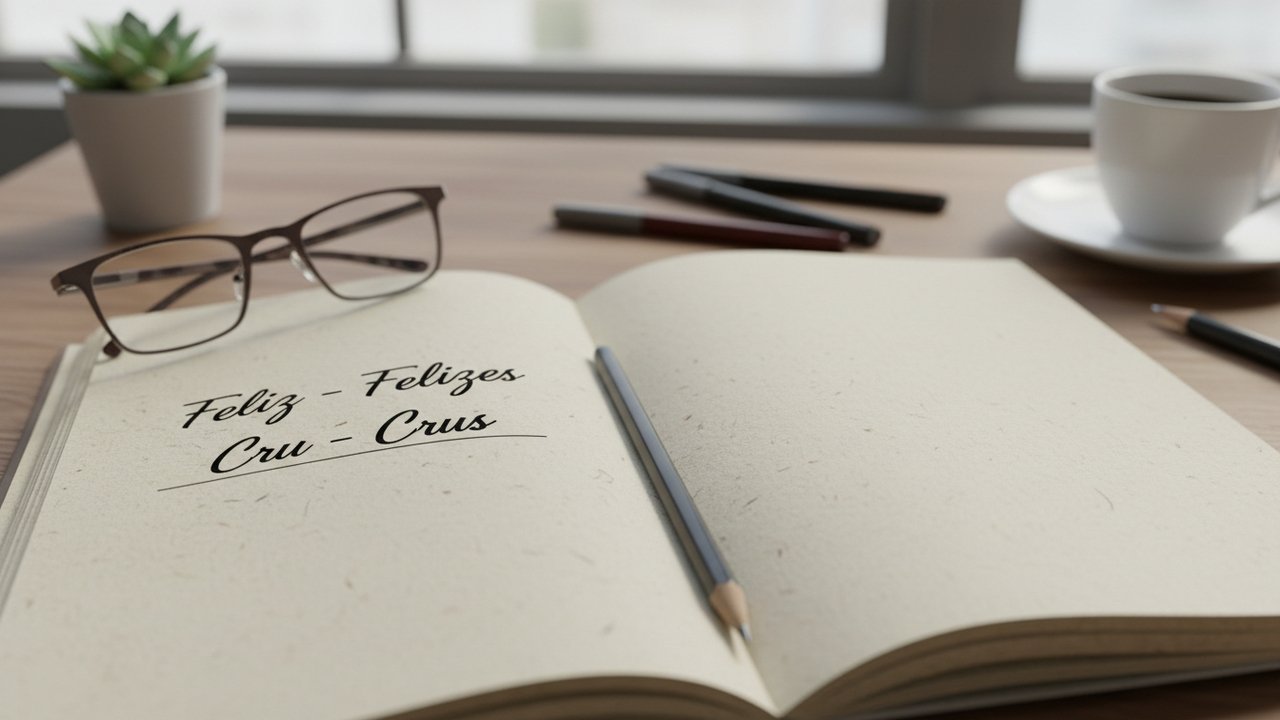 Feliz - Felizes
Cru - Crus